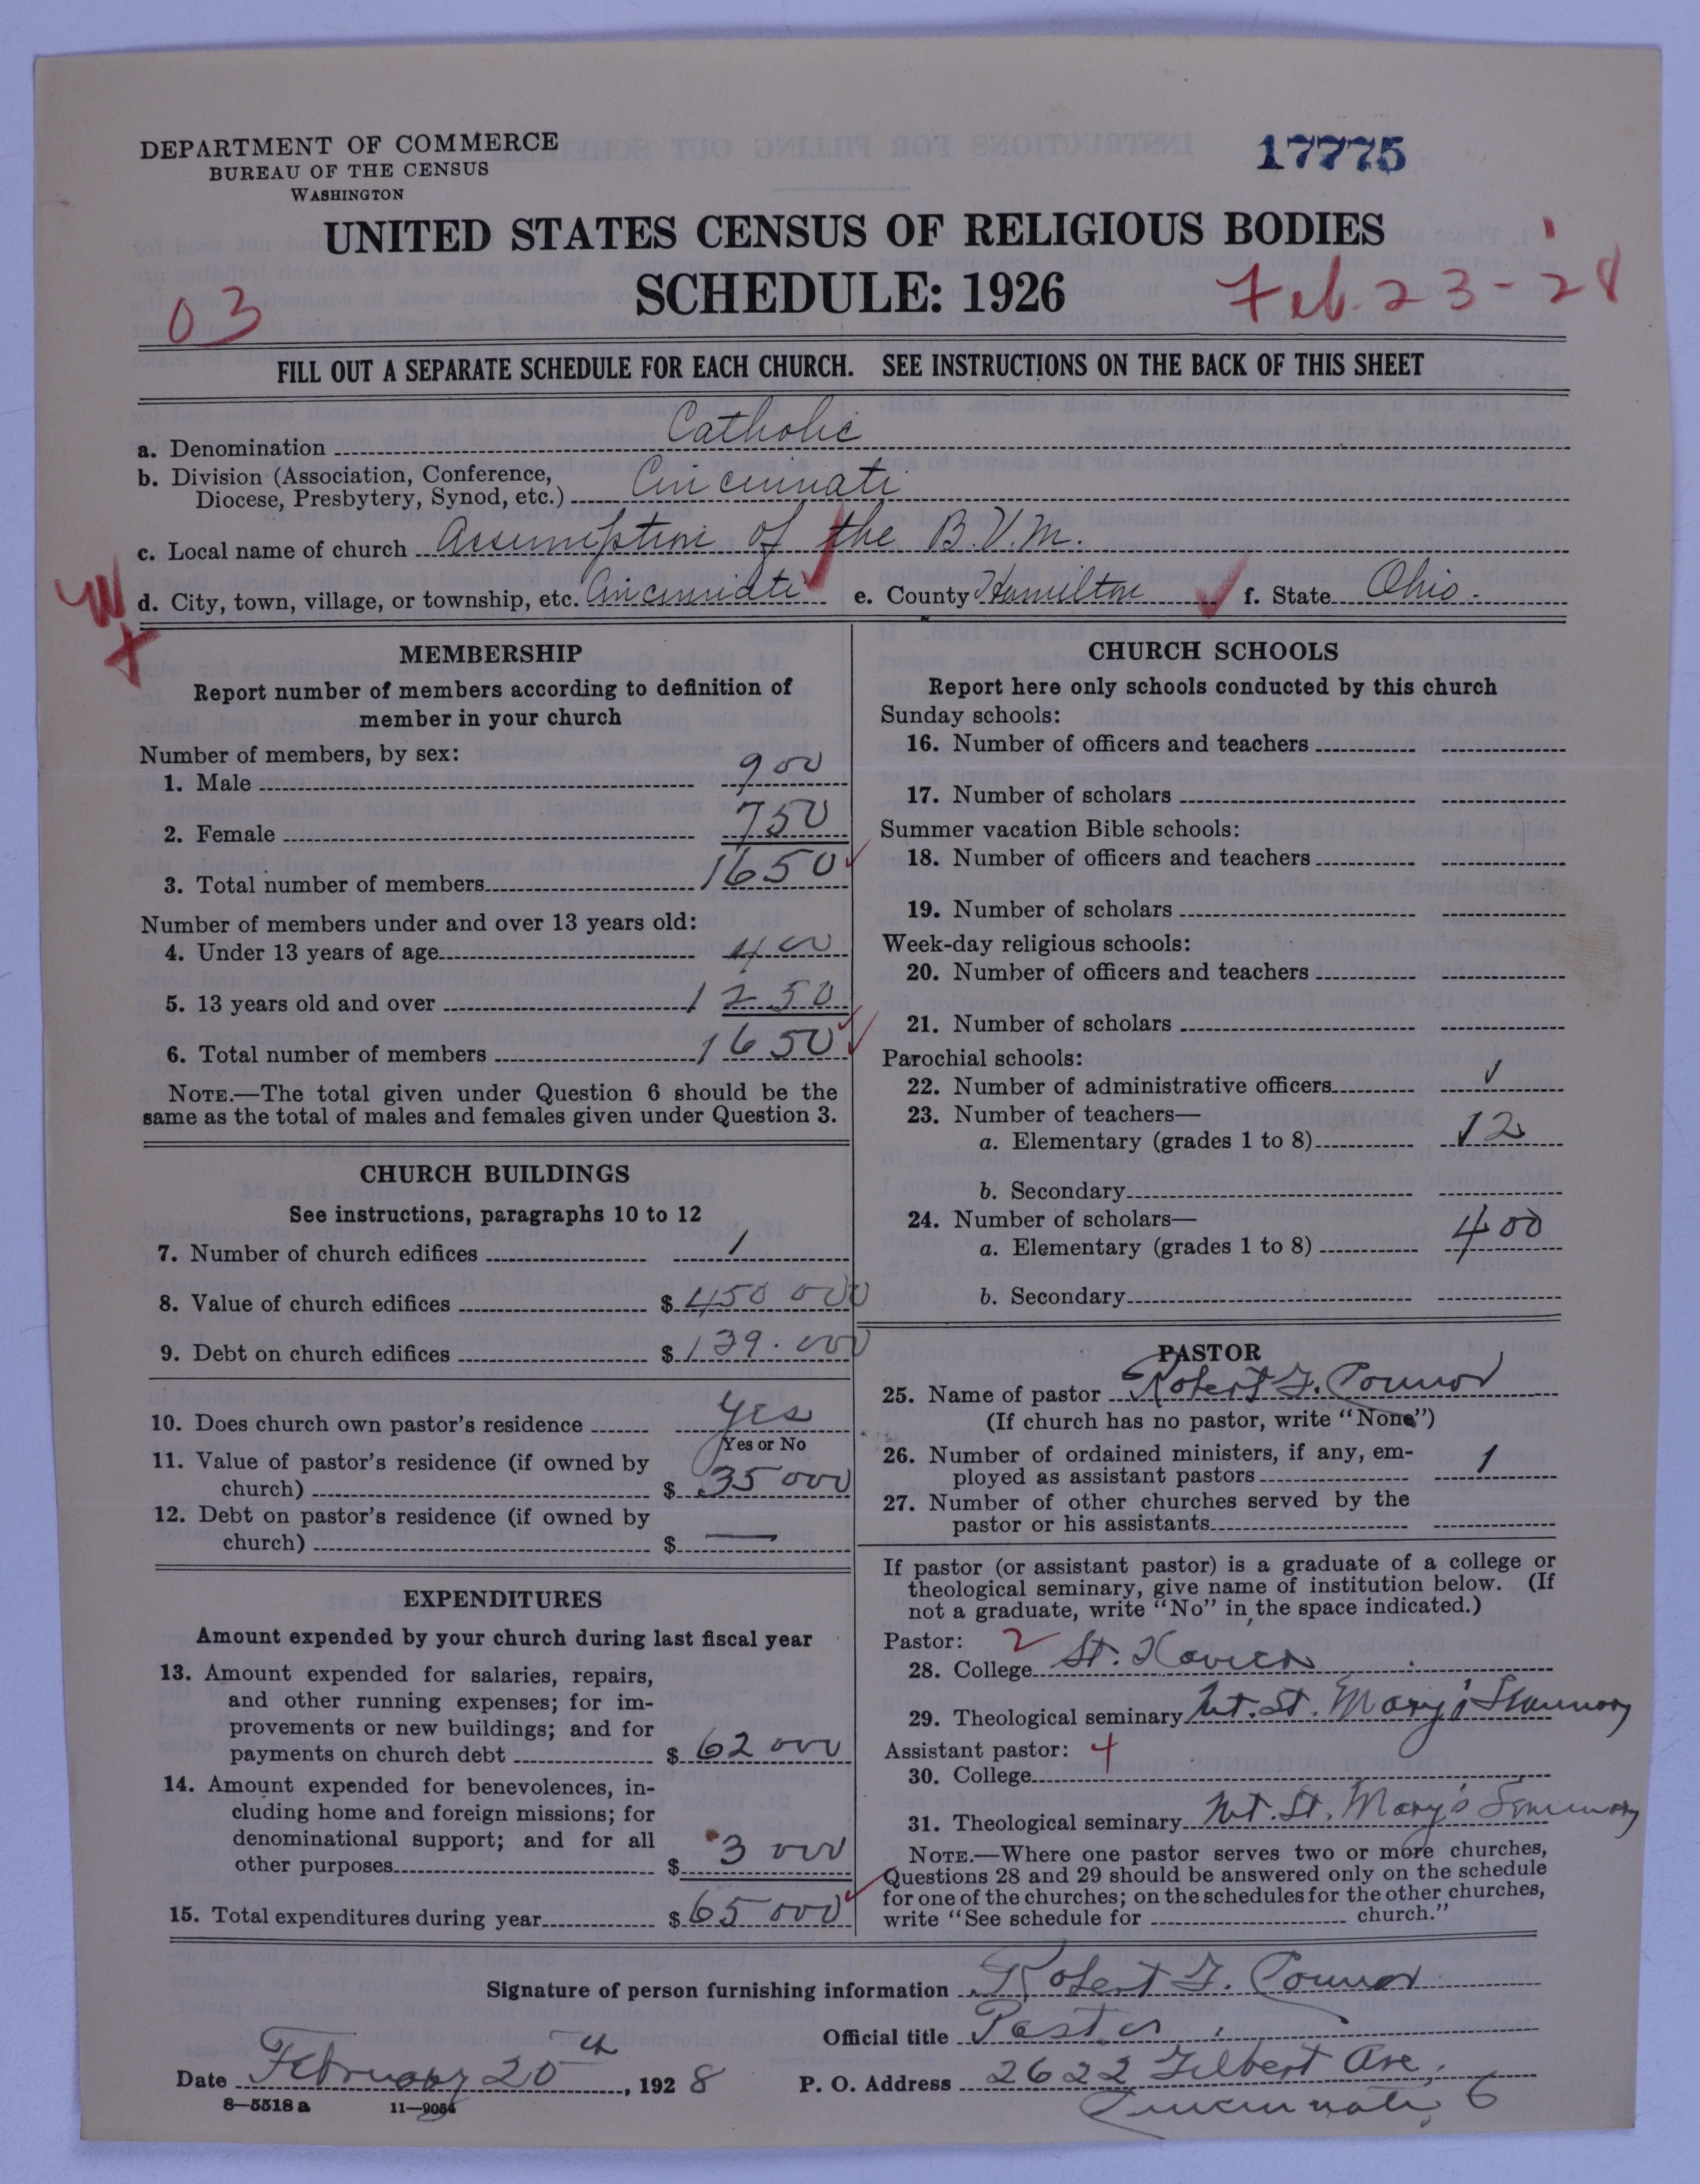 DEPARTMENT OF COMMERCE
BUREAU OF THE CENSUS
WASHINGTON
17775
UNITED STATES CENSUS OF RELIGIOUS BODIES
SCHEDULE: 1926
03
Feb. 23-28
FILL OUT A SEPARATE SCHEDULE FOR EACH CHURCH. SEE INSTRUCTIONS ON THE BACK OF THIS SHEET
a. Denomination Catholic
b. Division (Association, Conference,
Diocese, Presbytery, Synod, etc.) Cincinnati
c. Local name of church Assumption of the B.V.M.
d. City, town, village, or township, etc. Cincinnati e. County Hamilton f. State Ohio.
MEMBERSHIP
Report number of members according to definition of
member in your church
Number of members, by sex:
1. Male 900
2. Female 750
3. Total number of members 1650
Number of members under and over 13 years old:
4. Under 13 years of age 400
5. 13 years old and over 1250
6. Total number of members 1650
NOTE.—The total given under Question 6 should be the
same as the total of males and females given under Question 3.
CHURCH BUILDINGS
See instructions, paragraphs 10 to 12
7. Number of church edifices 1
8. Value of church edifices $ 450 000
9. Debt on church edifices $ 139.000
10. Does church own pastor's residence Yes
Yes or No
11. Value of pastor's residence (if owned by
church) $ 35 000
12. Debt on pastor's residence (if owned by
church) $ —
EXPENDITURES
Amount expended by your church during last fiscal year
13. Amount expended for salaries, repairs,
and other running expenses; for im-
provements or new buildings; and for
payments on church debt $ 62 000
14. Amount expended for benevolences, in-
cluding home and foreign missions; for
denominational support; and for all
other purposes $ 3 000
15. Total expenditures during year $ 65 000
CHURCH SCHOOLS
Report here only schools conducted by this church
Sunday schools:
16. Number of officers and teachers
17. Number of scholars
Summer vacation Bible schools:
18. Number of officers and teachers
19. Number of scholars
Week-day religious schools:
20. Number of officers and teachers
21. Number of scholars
Parochial schools:
22. Number of administrative officers
23. Number of teachers—
a. Elementary (grades 1 to 8) 12
b. Secondary
24. Number of scholars—
a. Elementary (grades 1 to 8) 400
b. Secondary
PASTOR
25. Name of pastor Robert J. Connor
(If church has no pastor, write "None")
26. Number of ordained ministers, if any, em-
ployed as assistant pastors 1
27. Number of other churches served by the
pastor or his assistants
If pastor (or assistant pastor) is a graduate of a college or
theological seminary, give name of institution below. (If
not a graduate, write "No" in the space indicated.)
Pastor: 2
28. College St. Xavier
29. Theological seminary Mt. St. Mary's Seminary
Assistant pastor: 4
30. College
31. Theological seminary Mt. St. Mary's Seminary
NOTE.—Where one pastor serves two or more churches,
Questions 28 and 29 should be answered only on the schedule
for one of the churches; on the schedules for the other churches,
write "See schedule for church."
Signature of person furnishing information Robert J. Connor
Official title Pastor
Date February 20th, 1928 P. O. Address 2622 Gilbert Ave.
Cincinnati, 6
8—5518a 11—9054